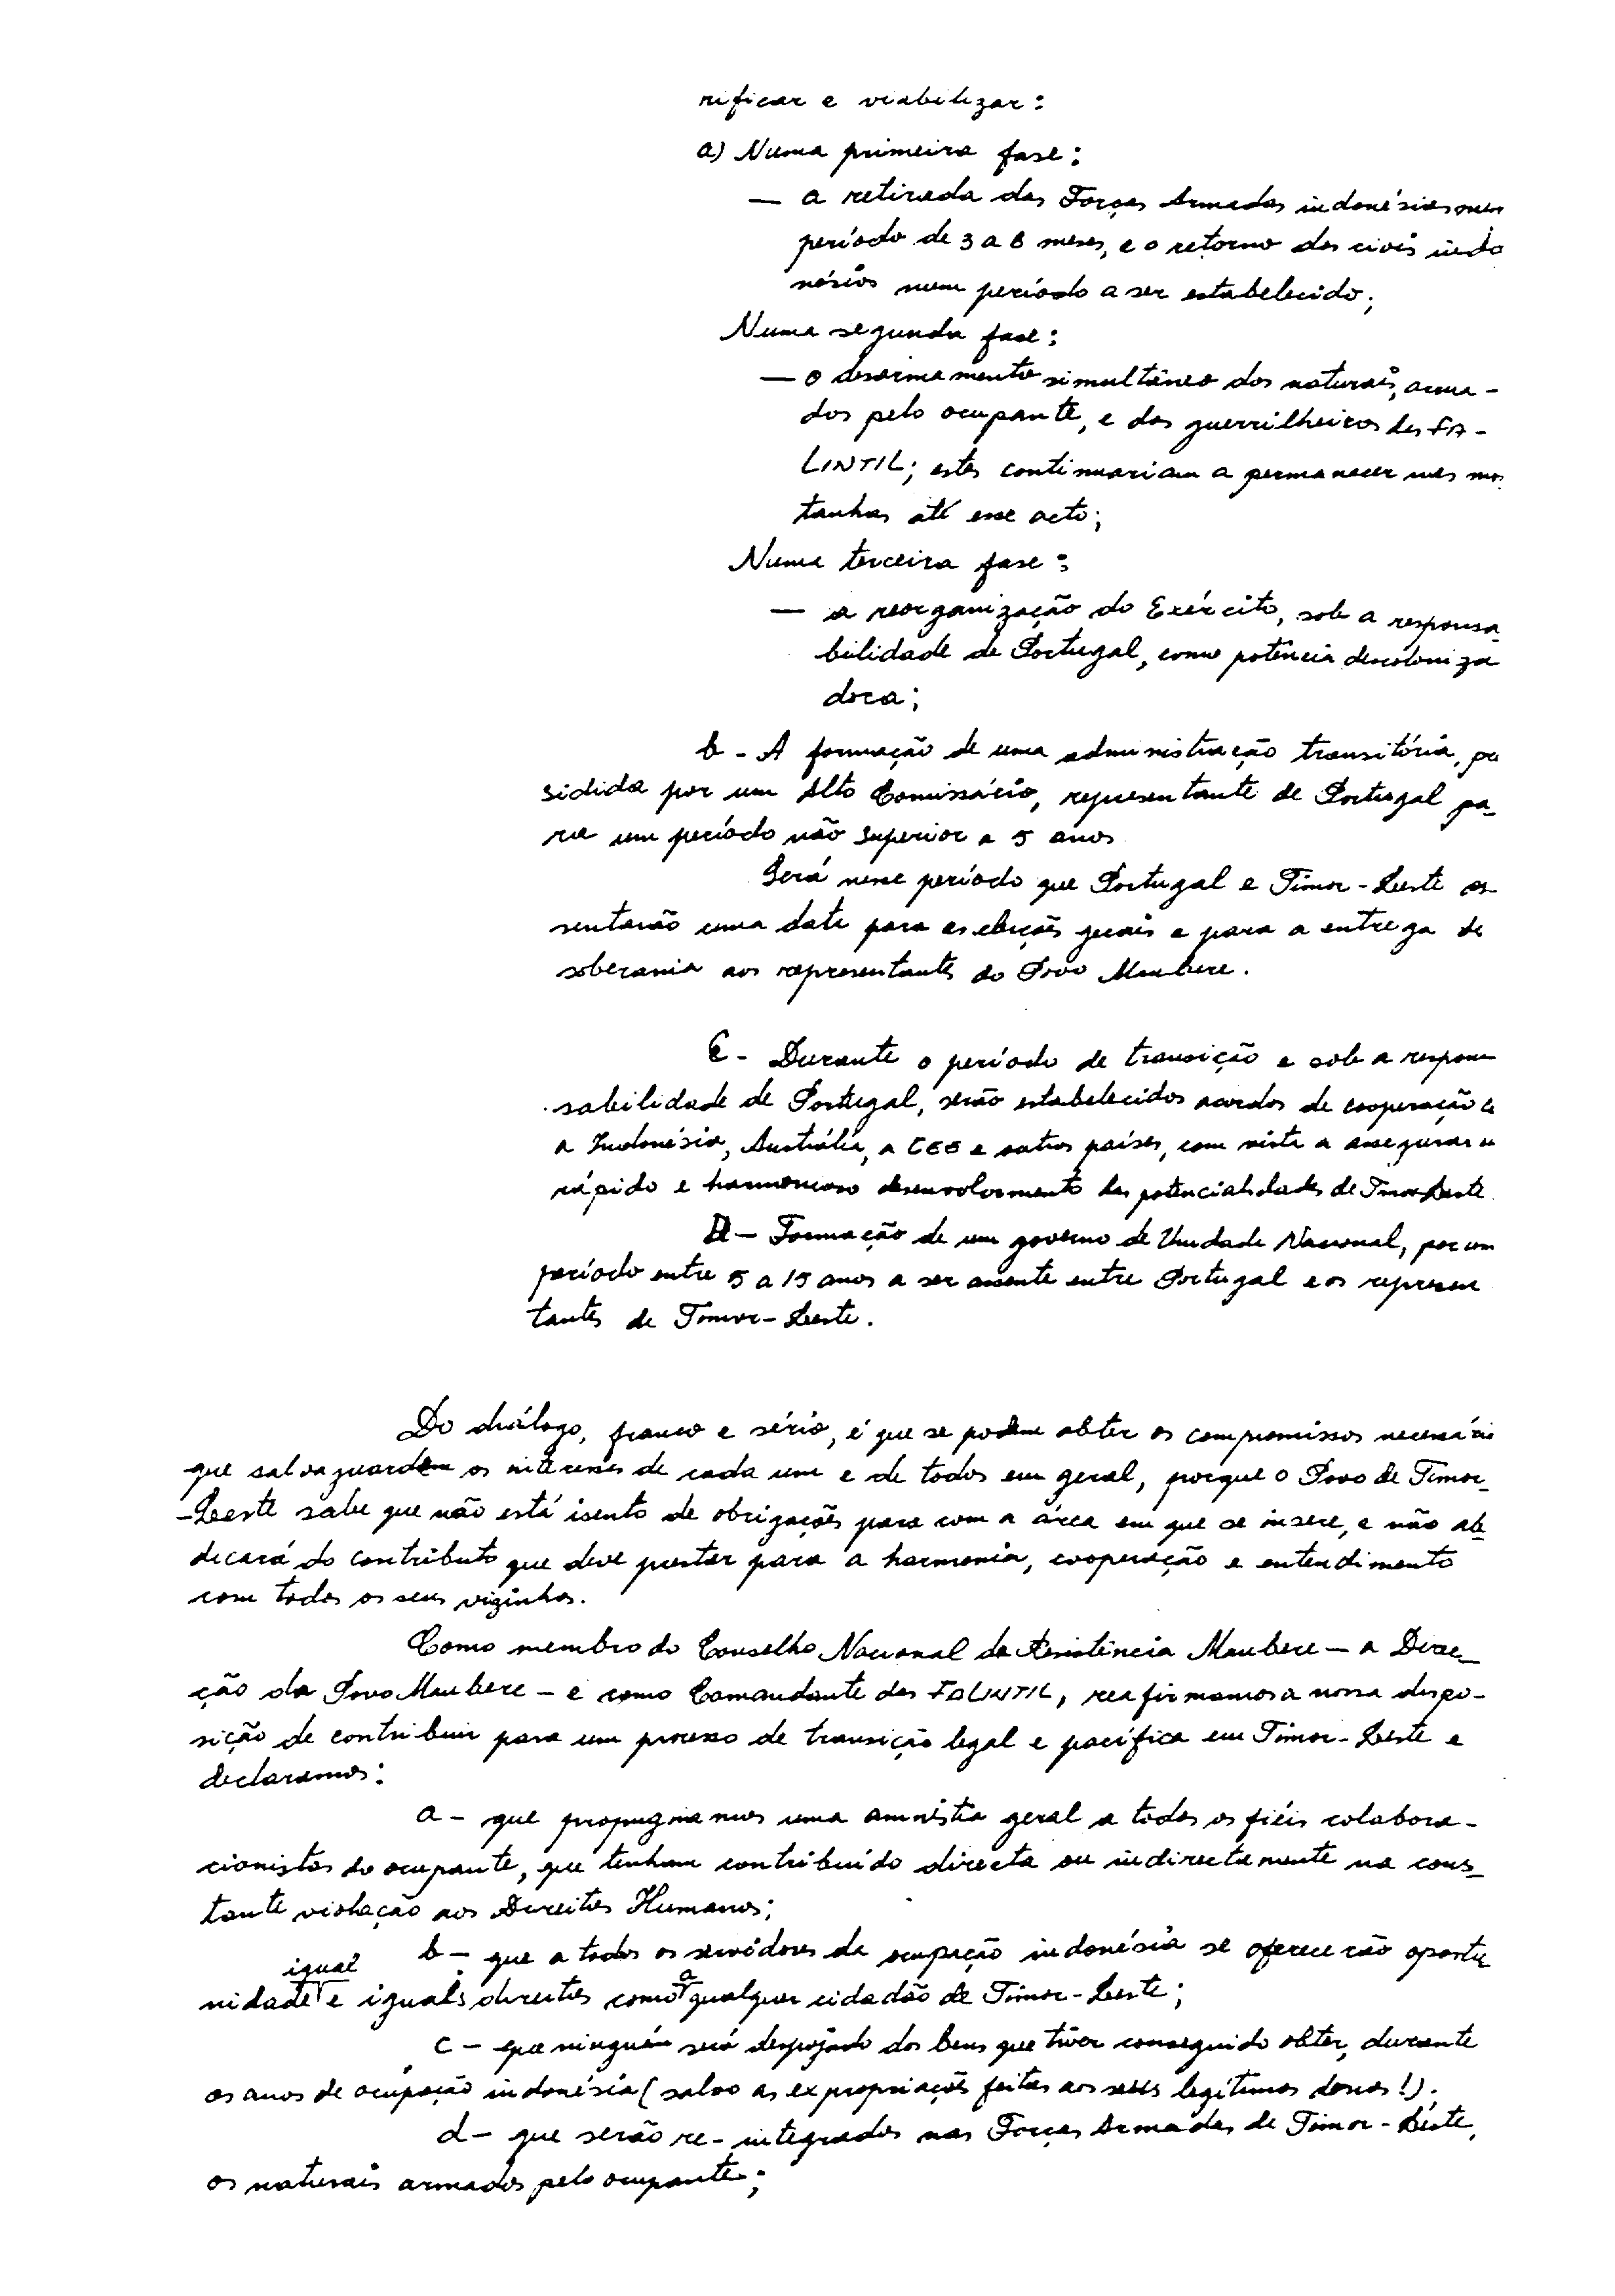 rificar e viabilizar:
a) Numa primeira fase:
— a retirada das Forças Armadas indonésias num
período de 3 a 6 meses, e o retorno dos civis indo
nésios num período a ser estabelecido;
Numa segunda fase:
— o desarmamento simultâneo dos naturais, arma-
dos pelo ocupante, e dos guerrilheiros das FA-
LINTIL; estes continuariam a permanecer nas mon
tanhas até esse acto;
Numa terceira fase:
— a reorganização do Exército, sob a responsa
bilidade de Portugal, como potência descoloniza
dora;
b - A formação de uma administração transitória, pre
sidida por um Alto Comissário, representante de Portugal pa-
ra um período não superior a 5 anos
Será nesse período que Portugal e Timor-Leste as
sentarão uma data para as eleições gerais e para a entrega de
soberania aos representantes do Povo Maubere.
C - Durante o período de transição e sob a respon
sabilidade de Portugal, serão estabelecidos acordos de cooperação c
a Indonésia, Austrália, a CEE e outros países, com vista a assegurar u
rápido e harmonioso desenvolvimento das potencialidades de Timor-Leste
D - Formação de um governo de Unidade Nacional, por um
período entre 5 a 15 anos a ser assente entre Portugal e os represen
tantes de Timor-Leste.
Do diálogo, franco e sério, é que se podem obter os compromissos necessários
que salvaguardem os interesses de cada um e de todos em geral, porque o Povo de Timor-
-Leste sabe que não está isento de obrigações para com a área em que se insere, e não ab
dicará do contributo que deve prestar para a harmonia, cooperação e entendimento
com todos os seus vizinhos.
Como membro do Conselho Nacional da Resistência Maubere — a Direc-
ção do Povo Maubere — e como Comandante das FALINTIL, reafirmamos a nossa dispo-
sição de contribuir para um processo de transição legal e pacífica em Timor-Leste e
declaramos:
a - que propugnamos uma amnistia geral a todos os fiéis colabora-
cionistas do ocupante, que tenham contribuído directa ou indirectamente na cons-
tante violação aos Direitos Humanos;
b - que a todos os servidores da ocupação indonésia se oferecerão oportu
igual
nidade e iguais direitos como a qualquer cidadão de Timor-Leste;
c - que ninguém será despojado dos bens que tiver conseguido obter, durante
os anos de ocupação indonésia (salvo as expropriações feitas aos seus legítimos donos!);
d - que serão re-integrados nas Forças Armadas de Timor-Leste,
os naturais armados pelo ocupante;